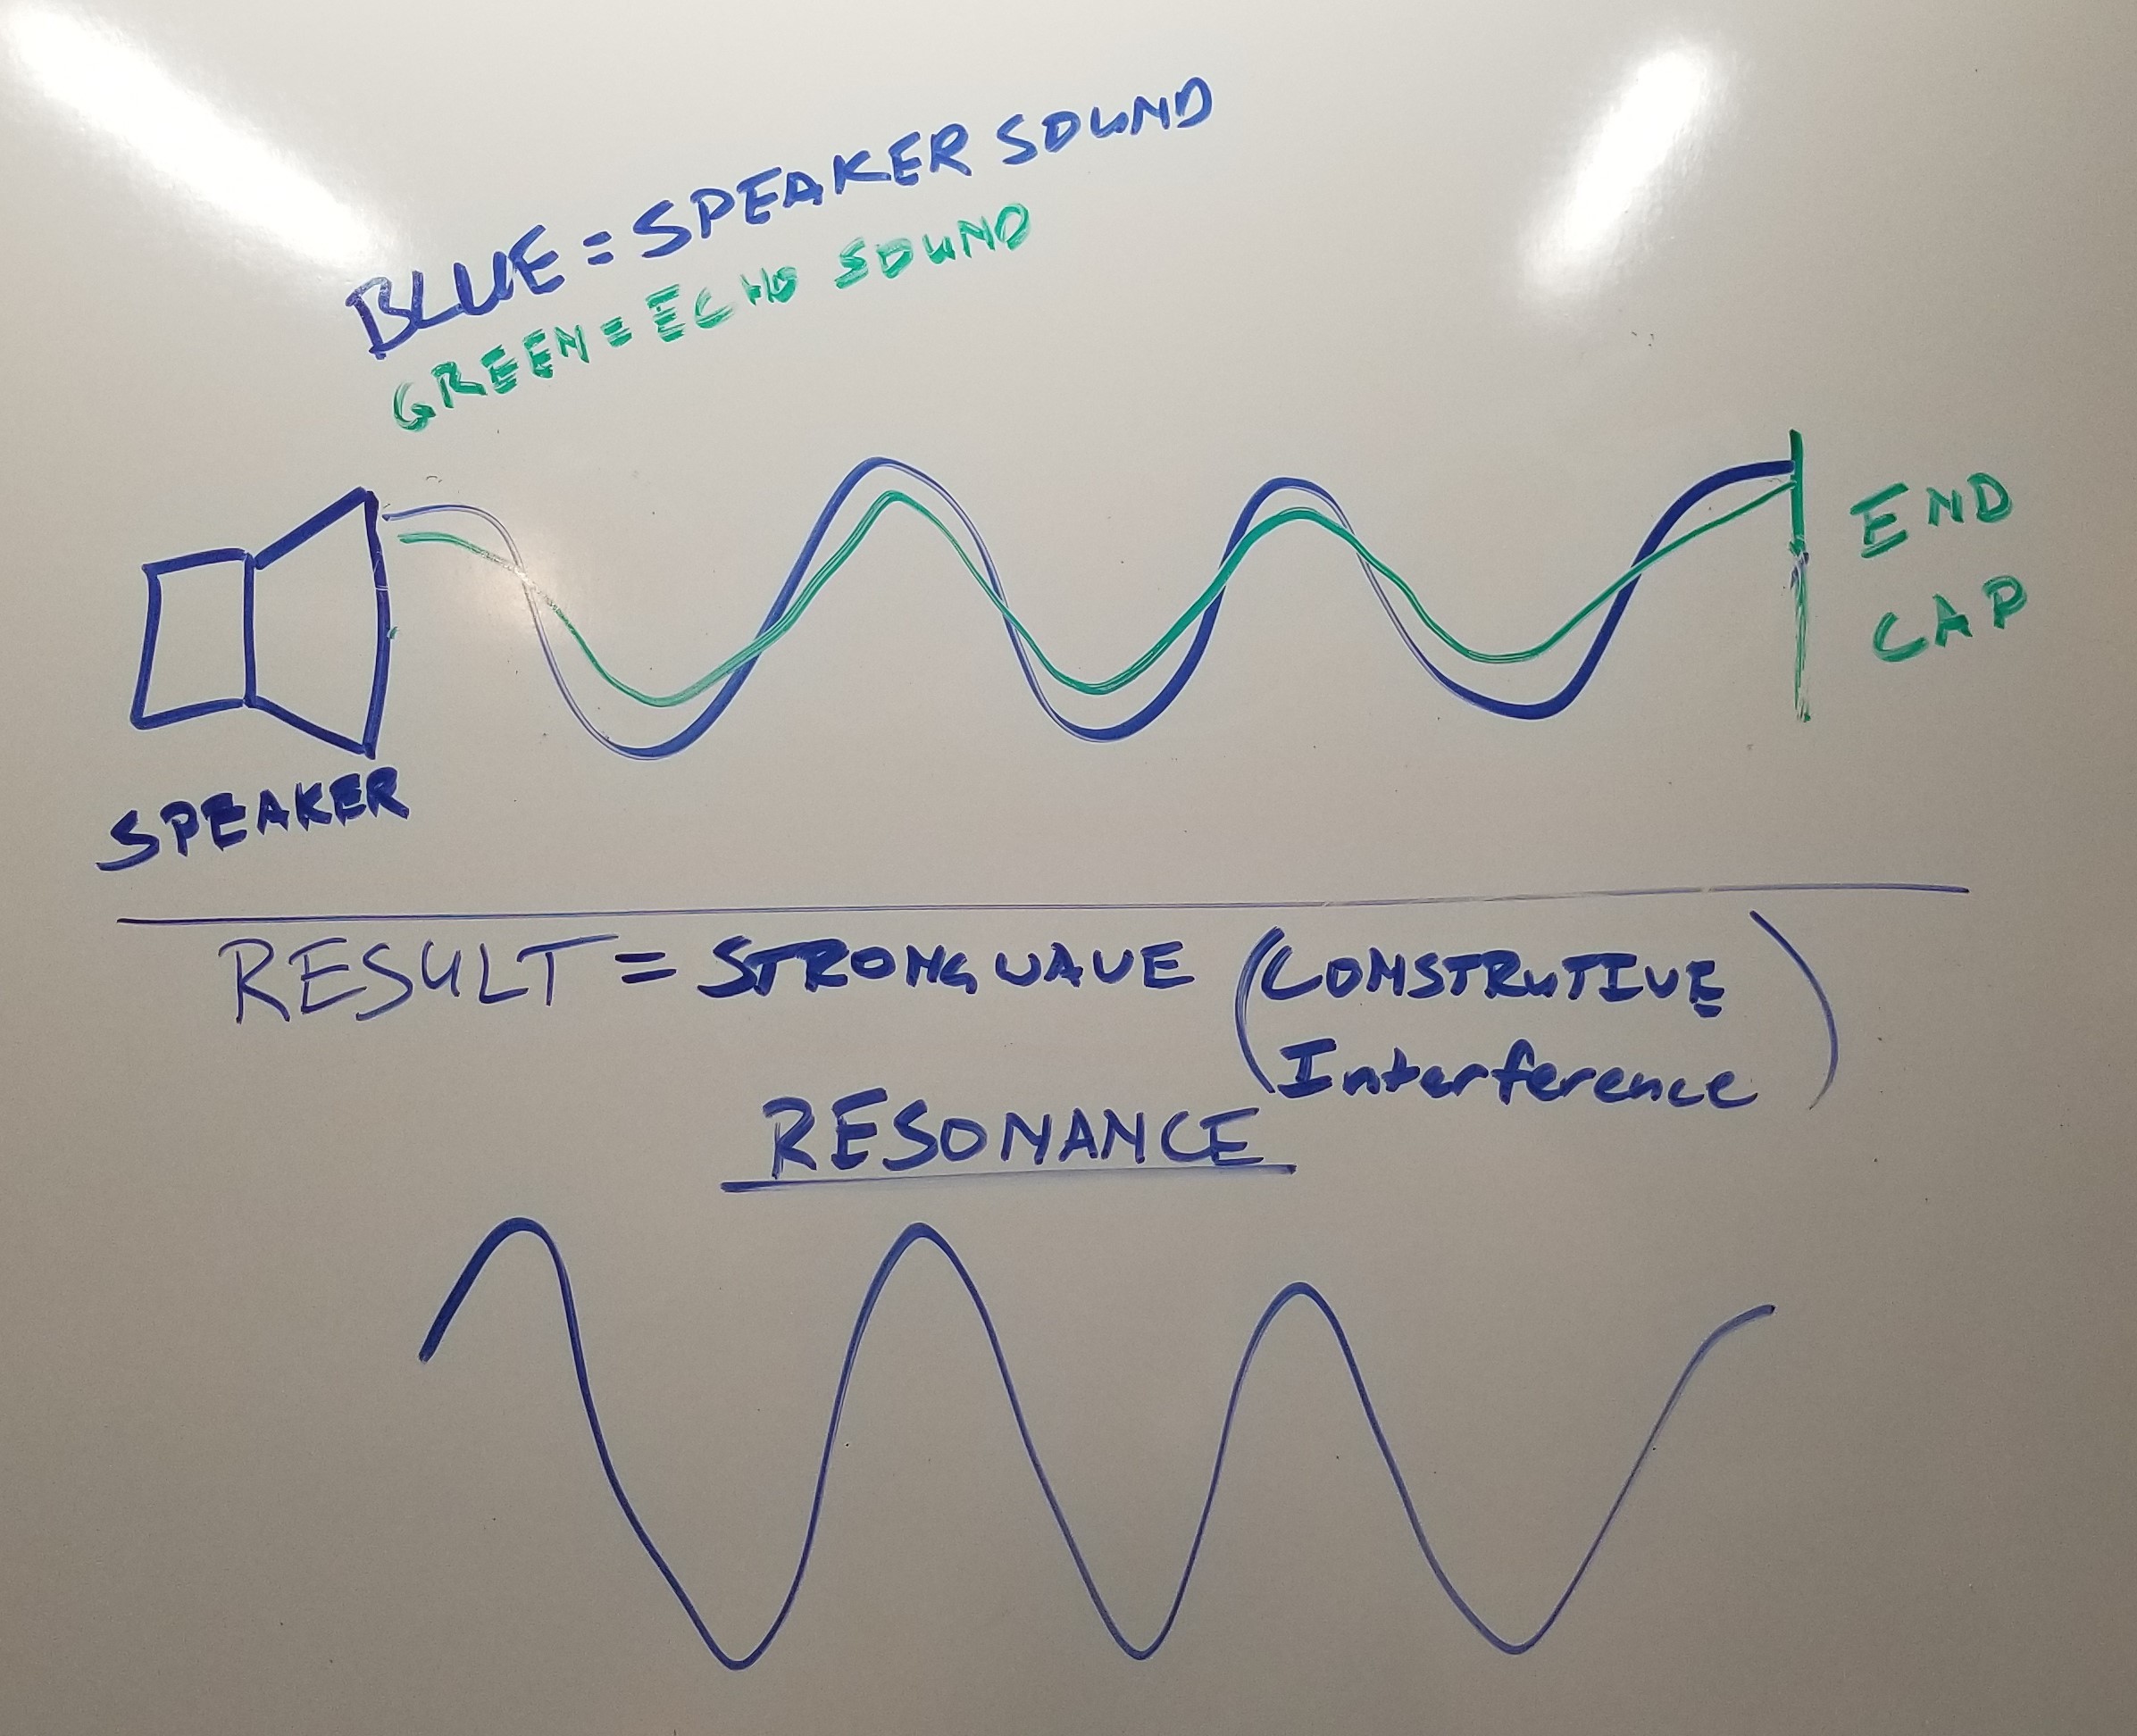 BLUE = SPEAKER SOUND
GREEN = ECHO SOUND
END
CAP
SPEAKER
RESULT = STRONG WAVE (CONSTRUTIVE
Interference)
RESONANCE